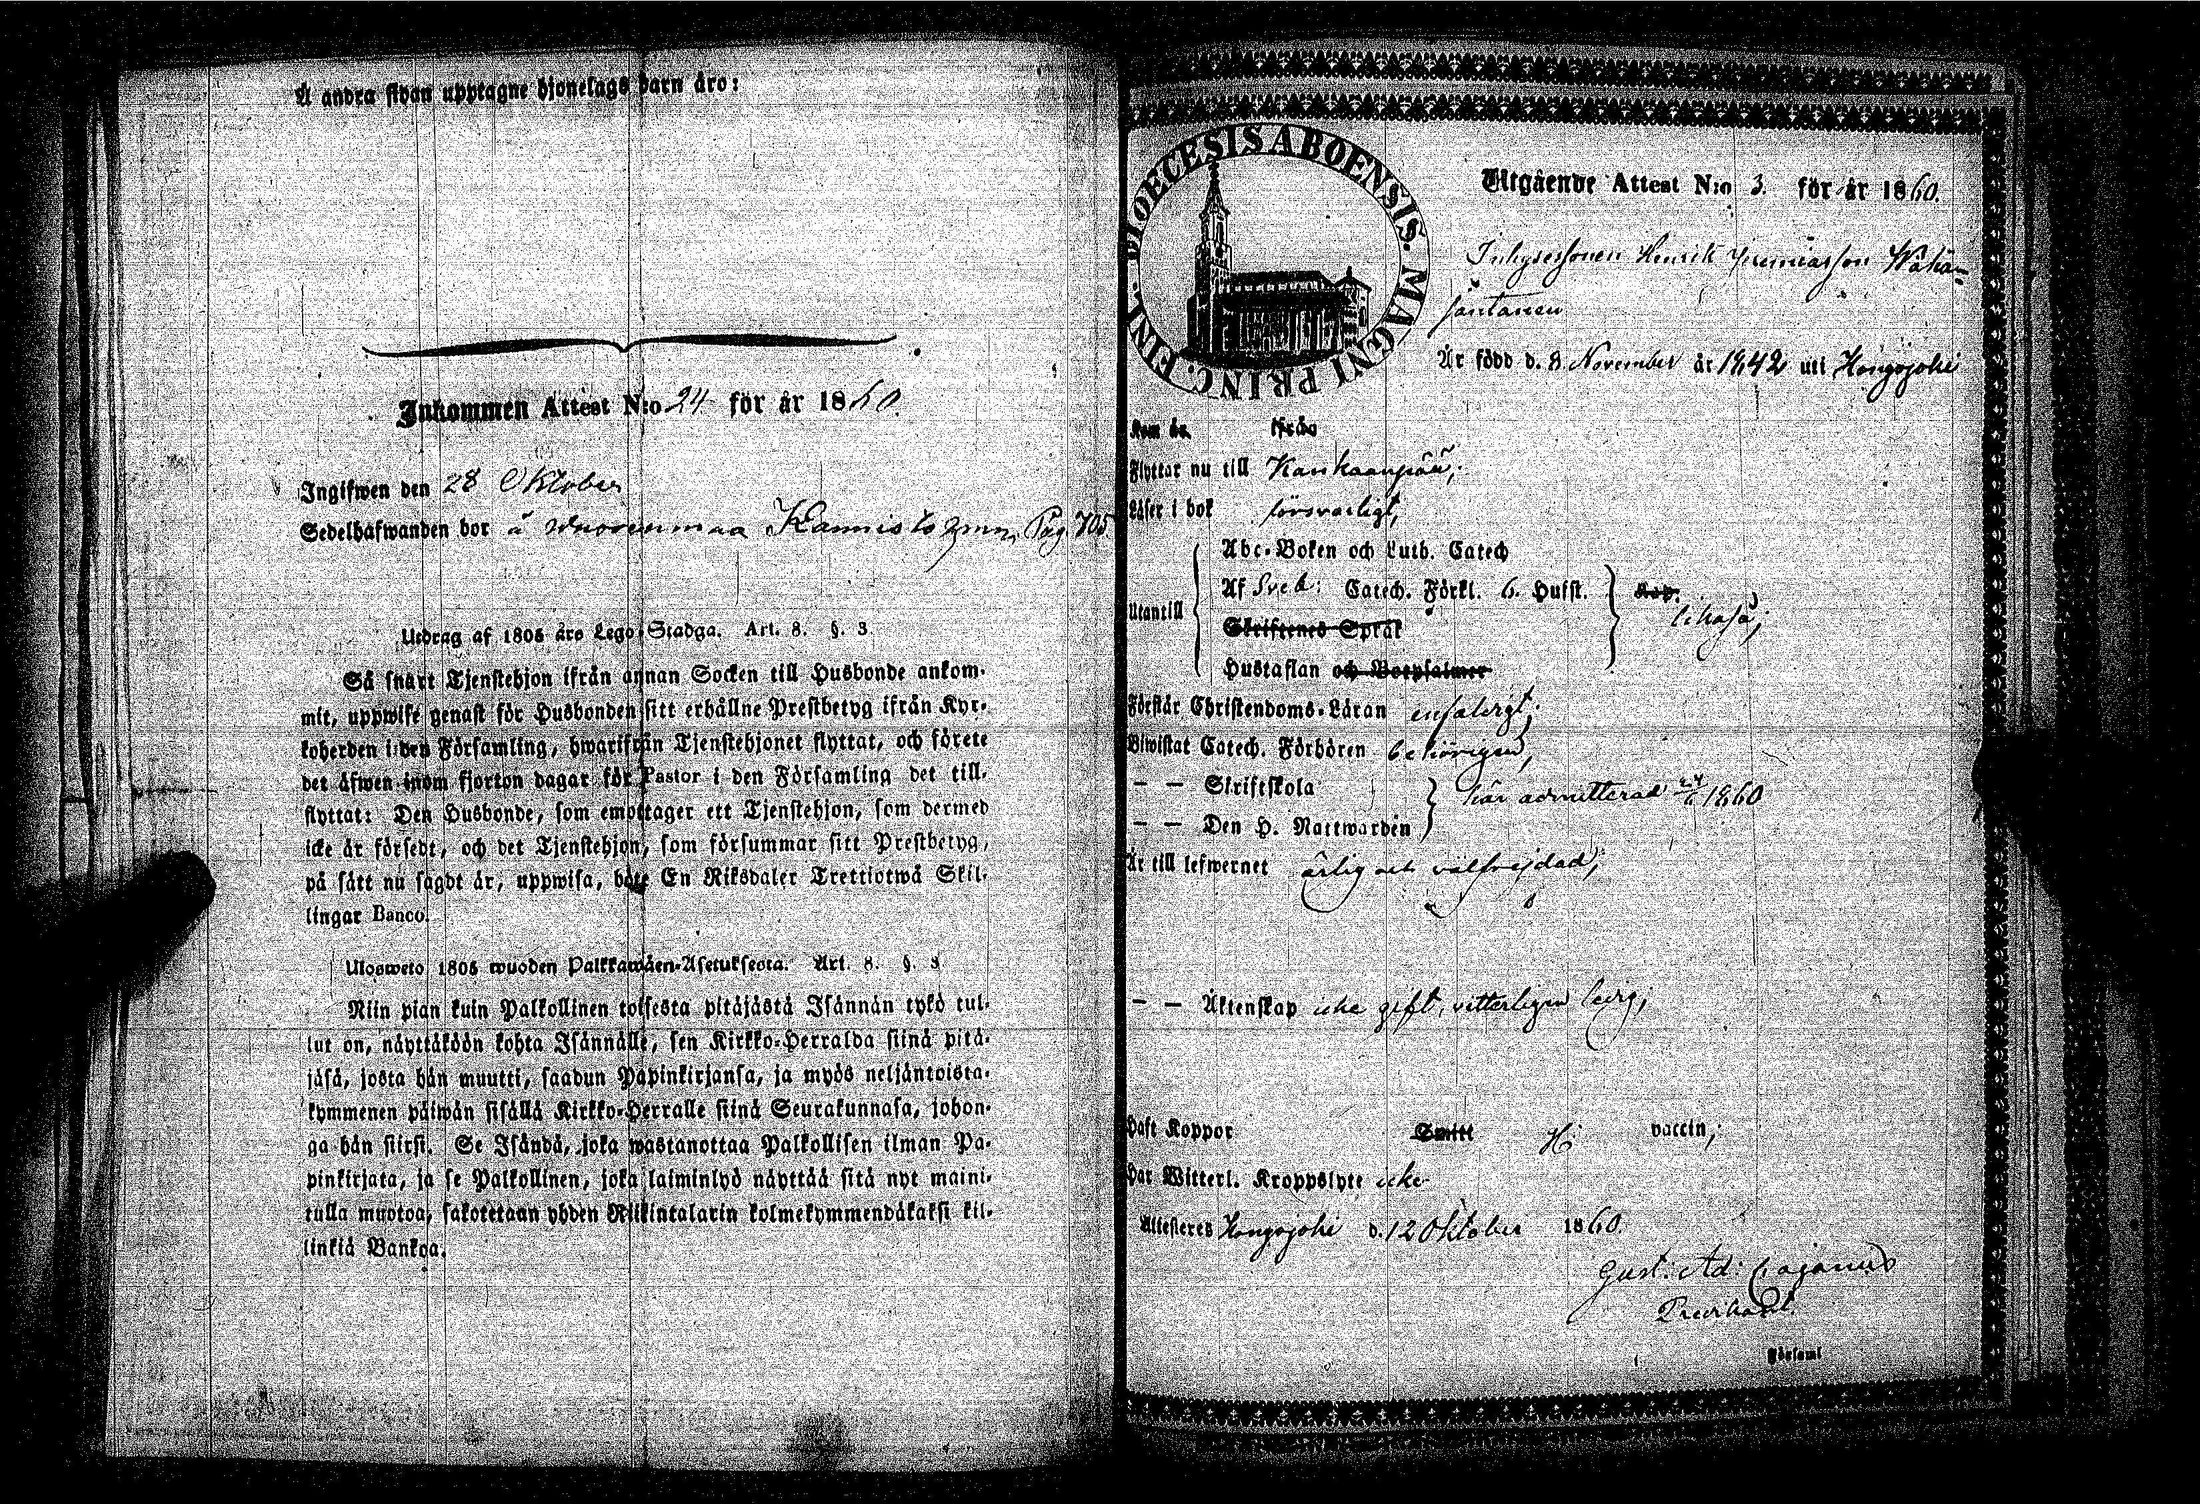 Å andra sidan upptagne hjonelags barn äro:
Inkommen Attest N:o 24 för år 1860.
Ingifwen den 28 Oktober
Sedelhafwanden bor å Kannisto Pag. 705.
Utdrag af 1805 års Lego-Stadga. Art. 8. §. 3
Så snart Tjenstehjon ifrån annan Socken till Husbonde ankom-
mit, uppwise genast för Husbonden sitt erhållne Prestbetyg ifrån Kyr-
koherden i den Församling, hwarifrån Tjenstehjonet flyttat, och förete
det äfwen inom fjorton dagar för Pastor i den Församling det till-
flyttat: Den Husbonde, som emottager ett Tjenstehjon, som dermed
icke är försedt, och det Tjenstehjon, som försummar sitt Prestbetyg,
på sätt nu sagdt är, uppwisa, böte En Riksdaler Trettiotwå Skil-
lingar Banco.
Ulosweto 1805 wuoden Palkkawäen-Asetuksesta. Art. 8. §. 3
Niin pian kuin Palkollinen toisesta pitäjästä Isännän tykö tul-
lut on, näyttäköön kohta Isännälle, sen Kirkko-Herralda siinä pitä-
jäsä, josta hän muutti, saadun Papinkirjansa, ja myös neljäntoista-
kymmenen päiwän sisällä Kirkko-Herralle siinä Seurakunnasa, johon-
ga hän siirsi. Se Isändä, joka wastanottaa Palkollisen ilman Pa-
pinkirjata, ja se Palkollinen, joka laiminlyö näyttää sitä nyt maini-
tulla muotoa, sakotetaan yhden Riikintalarin kolmekymmendäkaksi kil-
linkiä Bankoa.
DIOECESIS ABOENSIS. MAGNI PRINC. FINL.
Utgående Attest N:o 3. för år 1860.
Inhysessonen Henrik Jeremiasson Wähä-
säntanen
Är född d. 8 November år 1842 uti Hongojoki
Kom år ifrån
Flyttar nu till Kankaanpää;
Läser i bok försvarligt,
Abc-Boken och Luth. Catech
Af Sveb: Catech. Förkl. 6. Hufst.
Utantill
likaså;
Skriftenes Språk
Hustaflan och Botpsalmer
Förstår Christendoms-Läran enfaldigt;
Biwistat Catech. Förhören behörigen,
— — Skriftskola
här admitterad 24/6 1860
— — Den H. Nattwarden
Är till lefwernet ärlig och välfrejdad;
— — Äktenskap icke gift, vitterligen ledig;
Haft Koppor Smitt vaccin;
Har Witterl. Kroppslyte icke
Attesteres Hongojoki d. 12 Oktober 1860.
Gust. Ad: Cajanus
Församl